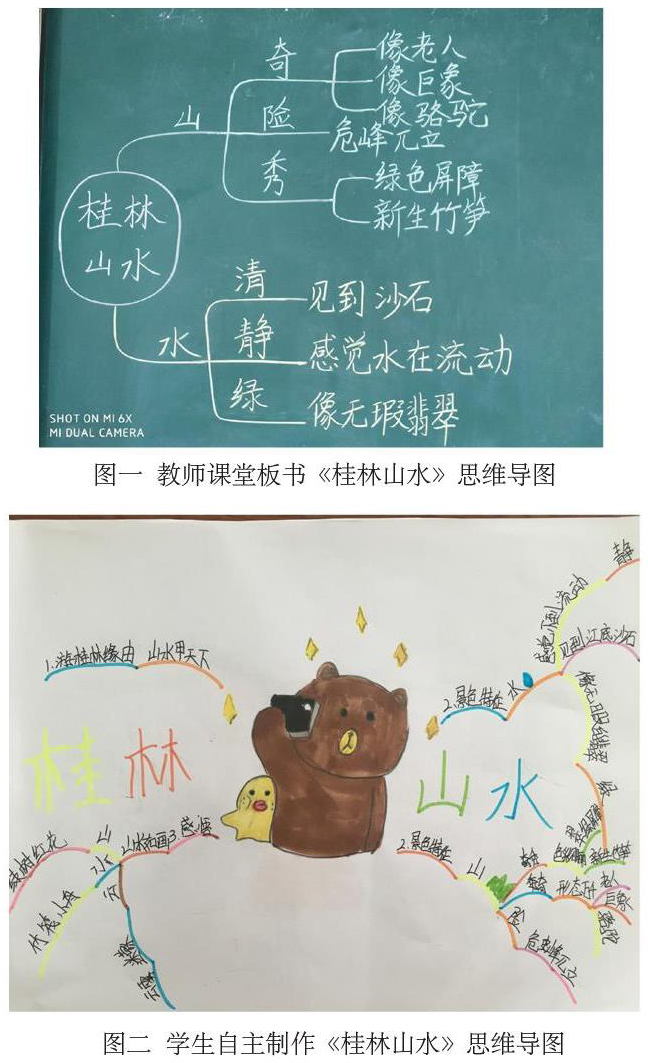 奇
像老人
像巨象
像骆驼
山
险
危峰兀立
秀
绿色屏障
新生竹笋
桂林
山水
清
见到沙石
水
静
感觉水在流动
绿
像无瑕翡翠
SHOT ON MI 6X
MI DUAL CAMERA
图一 教师课堂板书《桂林山水》思维导图
静
流动
见到江底沙石
山水甲天下
水
2.景色特征
桂林
山水
绿
山
水
山水如画
3.感受
绿树红花
竹筏小舟
云雾
2.景色特征
山
新生竹笋
形态万千
老人
巨象
骆驼
险
危峰兀立
图二 学生自主制作《桂林山水》思维导图